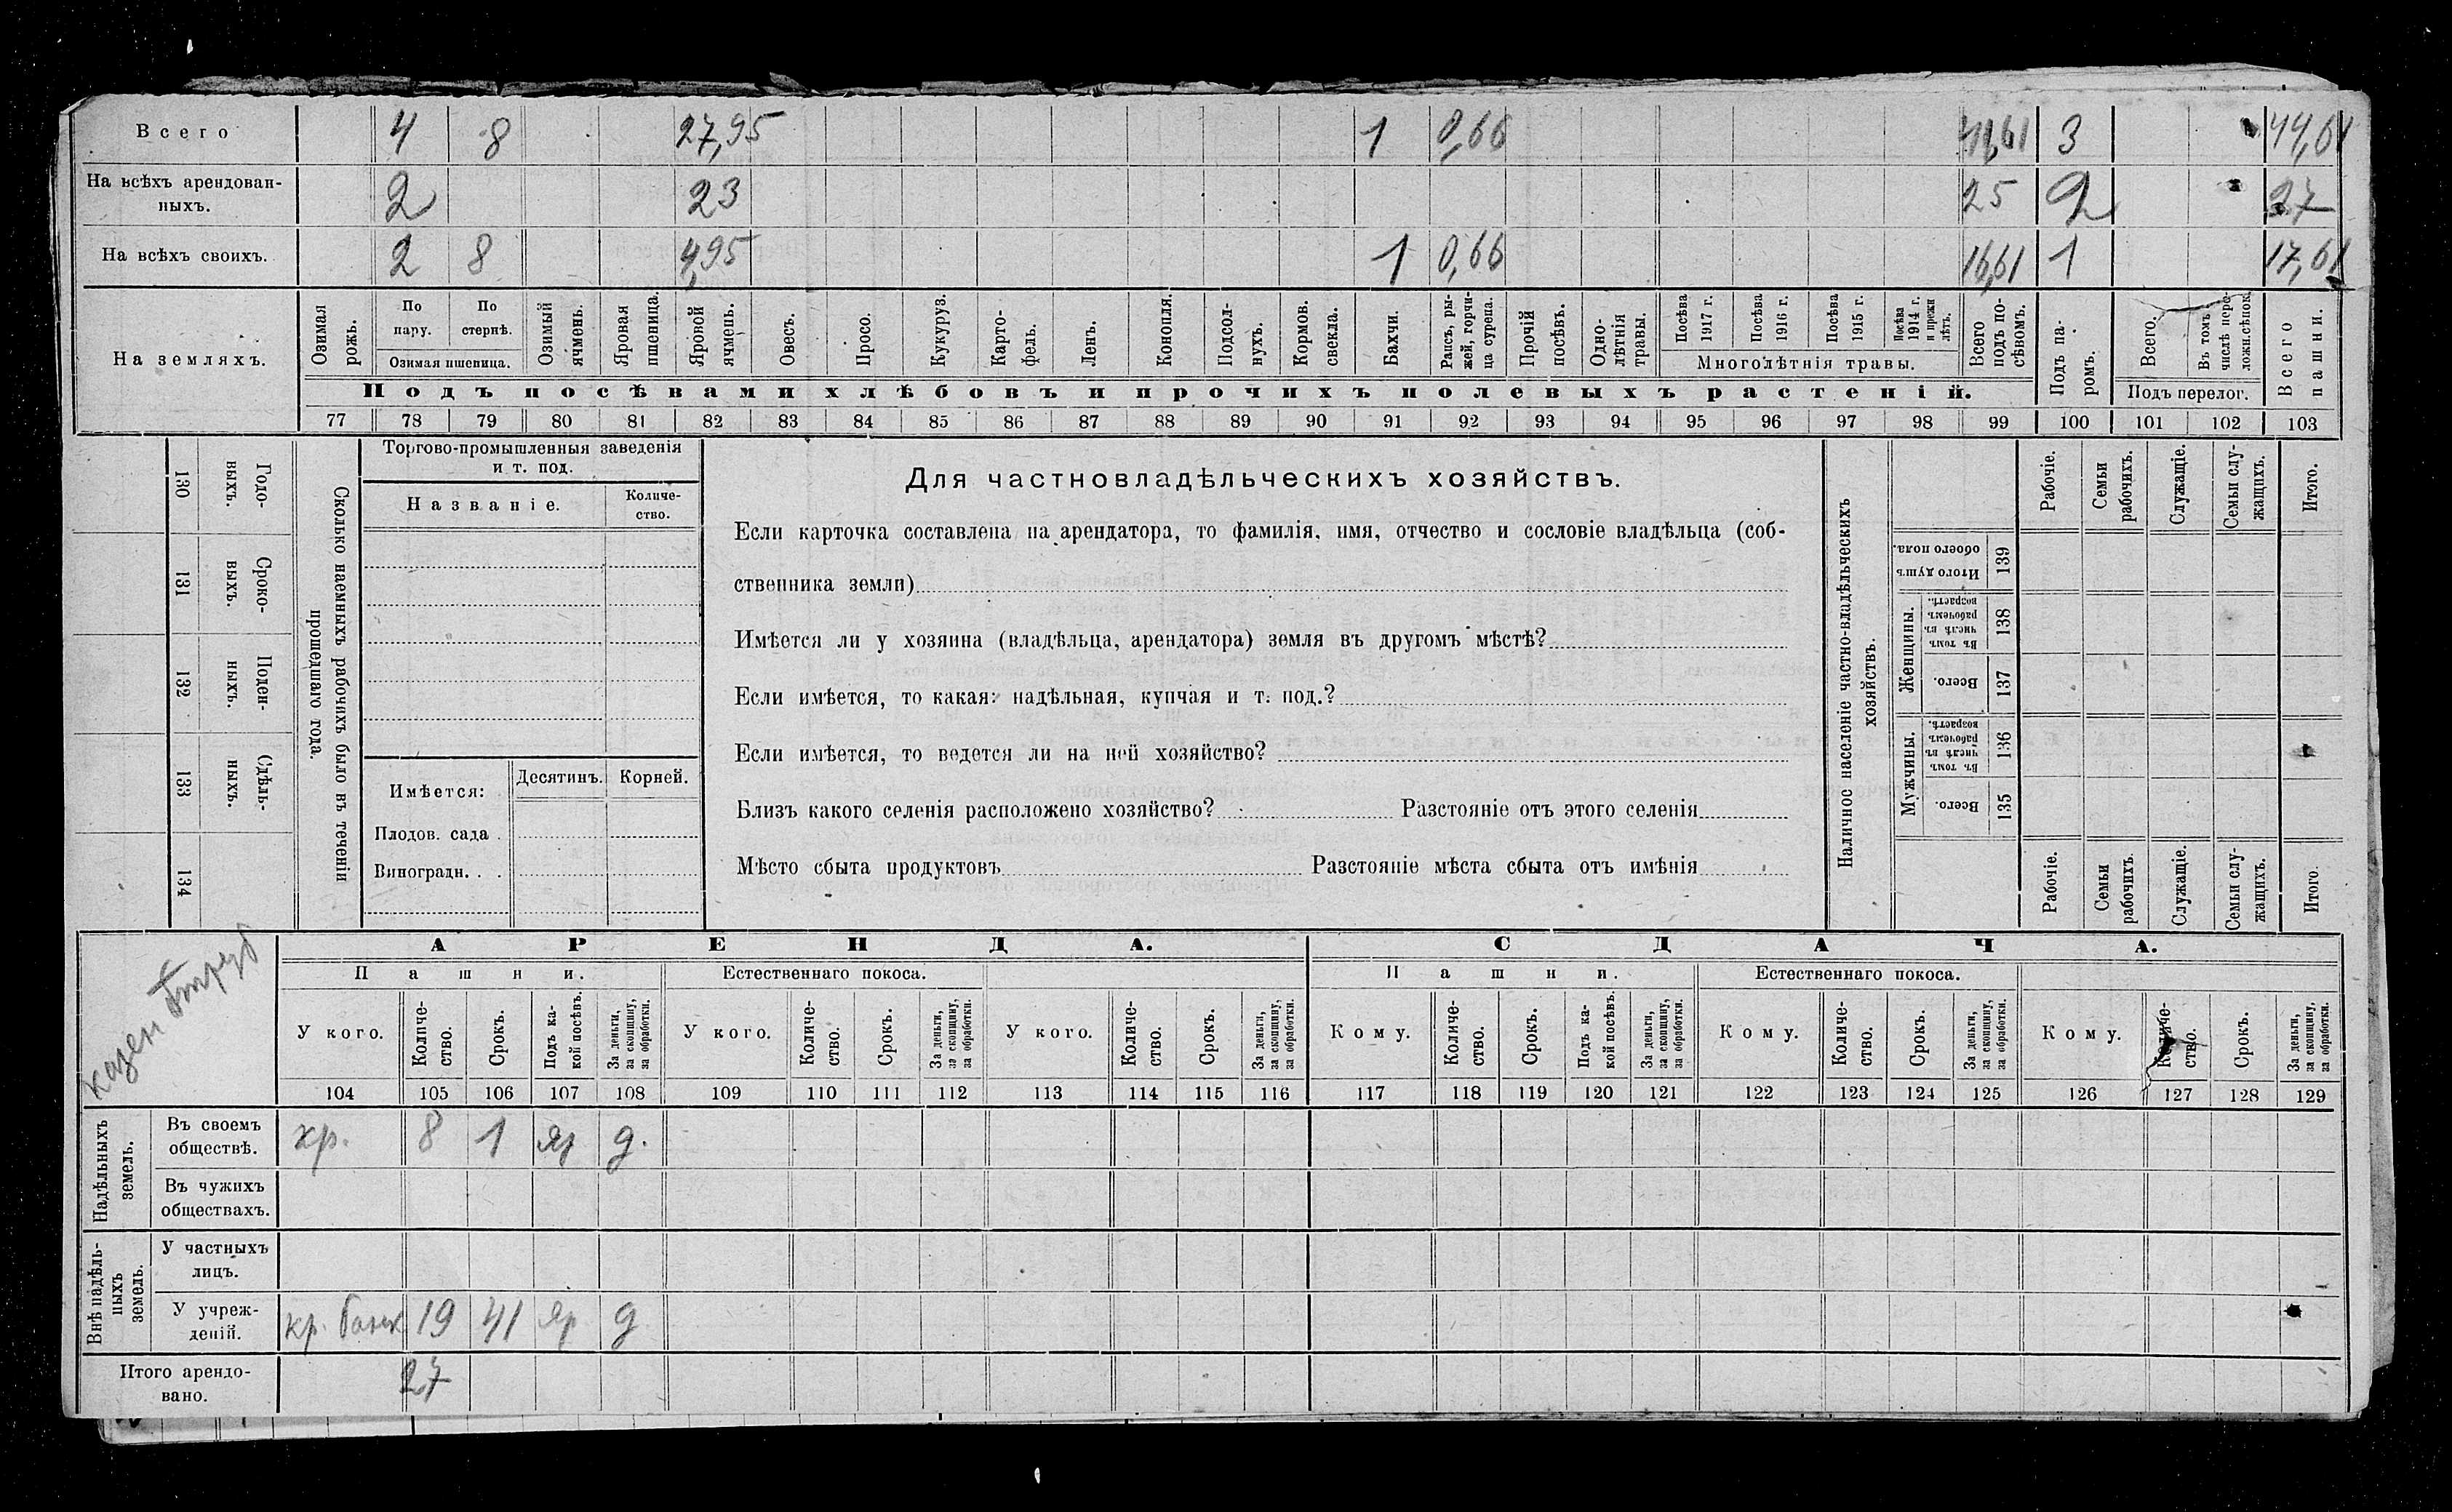 Всего 4 8 27,95 1 0,66 41,61 3 44,61
На всѣхъ арендован-
ныхъ. 2 23 25 2 27
На всѣхъ своихъ. 2 8 4,95 1 0,66 16,61 1 17,61
На земляхъ.
Озимая рожь.
По пару.
По стернѣ.
Озимая пшеница.
Озимый ячмень.
Яровая пшеница.
Яровой ячмень.
Овесъ.
Просо.
Кукуруз.
Карто-
фель.
Ленъ.
Конопля.
Подсол-
нухъ.
Кормов. свекла.
Бахчи.
Рапсъ, ры-
жей, горчи-
ца сурепа.
Прочій посѣвъ.
Одно-
лѣтнія травы.
Посѣва 1917 г.
Посѣва 1916 г.
Посѣва 1915 г.
Посѣва 1914 г. и прежн лѣтъ.
Многолѣтнія травы.
Всего подъ по-
сѣвомъ.
Подъ па-
ромъ.
Всего.
Въ томъ числѣ пере-
ложн. сѣнокос.
Подъ перелог.
Всего пашни.
Подъ посѣвами хлѣбовъ и прочихъ полевыхъ растеній.
77 78 79 80 81 82 83 84 85 86 87 88 89 90 91 92 93 94 95 96 97 98 99 100 101 102 103
130 Годо-
выхъ.
131 Сроко-
выхъ.
132 Поден-
ныхъ.
133 Сдѣль-
ныхъ.
134
Сколько наемныхъ рабочихъ было въ теченіи
прошедшаго года.
Торгово-промышленныя заведенія
и т. под.
Названіе.
Количе-
ство.
Имѣется:
Десятинъ.
Корней.
Плодов. сада .
Виноградн. . .
Для частновладѣльческихъ хозяйствъ.
Если карточка составлена на арендатора, то фамилія, имя, отчество и сословіе владѣльца (соб-
ственника земли)
Имѣется ли у хозяина (владѣльца, арендатора) земля въ другомъ мѣстѣ?
Если имѣется, то какая: надѣльная, купчая и т. под.?
Если имѣется, то ведется ли на ней хозяйство?
Близъ какого селенія расположено хозяйство? Разстояніе отъ этого селенія
Мѣсто сбыта продуктовъ Разстояніе мѣста сбыта отъ имѣнія
Наличное населеніе частно-владѣльческихъ
хозяйствъ.
Рабочіе.
Семьи рабочихъ.
Служащіе.
Семьи слу-
жащихъ.
Итого.
Итого душъ обоего пола. 139
Женщины.
Въ томъ числѣ въ рабочемъ возрастѣ. 138
Всего. 137
Мужчины.
Въ томъ числѣ въ рабочемъ возрастѣ. 136
Всего. 135
Рабочіе.
Семьи рабочихъ.
Служащіе.
Семьи слу-
жащихъ.
Итого.
казен
АРЕНДА. СДАЧА.
Пашни. Естественнаго покоса. Пашни. Естественнаго покоса.
У кого.
Количе-
ство.
Срокъ.
Подъ ка-
кой посѣвъ.
За деньги,
за скопщину,
за обработки.
У кого.
Количе-
ство.
Срокъ.
За деньги,
за скопщину,
за обработки.
У кого.
Количе-
ство.
Срокъ.
За деньги,
за скопщину,
за обработки.
Кому.
Количе-
ство.
Срокъ.
Подъ ка-
кой посѣвъ.
За деньги,
за скопщину,
за обработки.
Кому.
Количе-
ство.
Срокъ.
За деньги,
за скопщину,
за обработки.
Кому.
Количе-
ство.
Срокъ.
За деньги,
за скопщину,
за обработки.
104 105 106 107 108 109 110 111 112 113 114 115 116 117 118 119 120 121 122 123 124 125 126 127 128 129
Надѣльныхъ
земель.
Въ своемъ
обществѣ. кр. 8 1 яр д.
Въ чужихъ
обществахъ.
Внѣ надѣль-
ныхъ
земель.
У частныхъ
лицъ.
У учреж-
деній. кр. банк 19 41 яр д
Итого арендо-
вано. 27